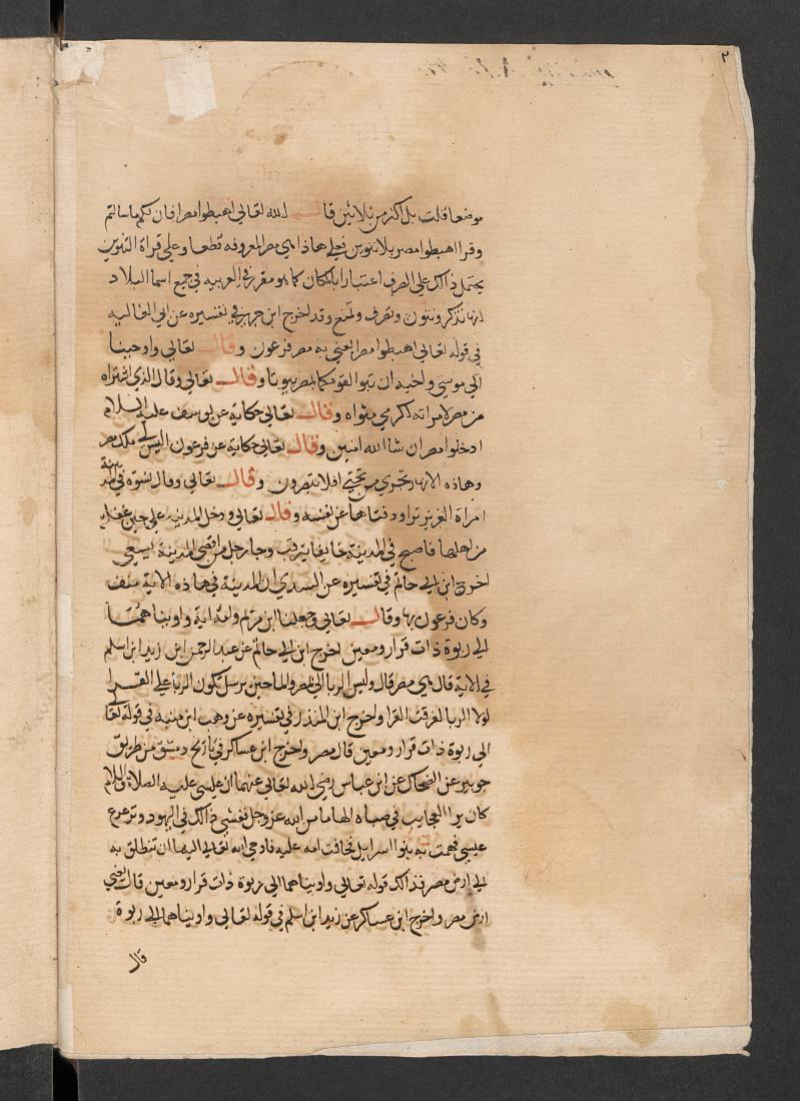 ٢
موضعا قلت بل اكثر من ثلاثين قال الله تعالى اهبطوا مصرا فان لكم ما سالتم
وقرا اهبطوا مصر بلا تنوين فعلى هاذا هي مصر المعروفه قطعا وعلى قراة التنوين
يحتمل ذالك على الصرف اعتبارا بالمكان كما هو مقرر في العربيه في جميع اسما البلاد
انها تذكر وتنون وتصرف وتمنع وقد اخرج ابن جرير في تفسيره عن ابي العاليه
في قوله تعالى اهبطوا مصرا يعني به مصر فرعون وقال تعالى واوحينا
الى موسى واخيه ان تبوا لقومكما بمصر بيوتا وقال تعالى وقال الذي اشتراه
من مصر لامراته اكرمي مثواه وقال تعالى حكاية عن يوسف عليه السلام
ادخلوا مصر ان شا الله امنين وقال تعالى حكاية عن فرعون اليس لي ملك مصر
وهاذه الانهار تجري من تحتي افلا تبصرون وقال تعالى وقال نسوة في المدينة
امراة العزيز تراود فتاها عن نفسه وقال تعالى ودخل المدينه على حين غفلة
من اهلها فاصبح في المدينة خايفا يترقب وجا رجل من اقصى المدينة يسعى
اخرج ابن ابي حاتم في تفسيره عن السدي ان المدينة في هاذه الاية منف
وكان فرعون بها وقال تعالى وجعلنا ابن مريم وامه اية واويناهما
الى ربوة ذات قرار ومعين اخرج ابن ابي حاتم عن عبد الرحمن ابن زيد ابن اسلم
في الاية قال هي مصر قال وليس الربا الا بمصر والما حين يرسل تكون الربا عليها القرا
لولا الربا لغرقت القرا واخرج ابن المنذر في تفسيره عن وهب ابن منبه في قوله تعالى
الى ربوة ذات قرار ومعين قال مصر واخرج ابن عساكر في تاريخ دمشق من طريق
جويبر عن الضحاك عن ابن عباس رضي الله تعالى عنهما ان عيسى عليه الصلاة والسلام
كان يرا العجايب في صباه الهاما من الله عز وجل ففشى ذالك في اليهود وترعرع
عيسى فهمت به بنوا اسرايل فخافت امه عليه فاوحى الله تعالى اليها ان تنطلق به
الى ارض مصر فذالك قوله تعالى واويناهما الى ربوة ذات قرار ومعين قال يعني
ارض مصر واخرج ابن عساكر عن زيد ابن اسلم في قوله تعالى واويناهما الى ربوة
قال